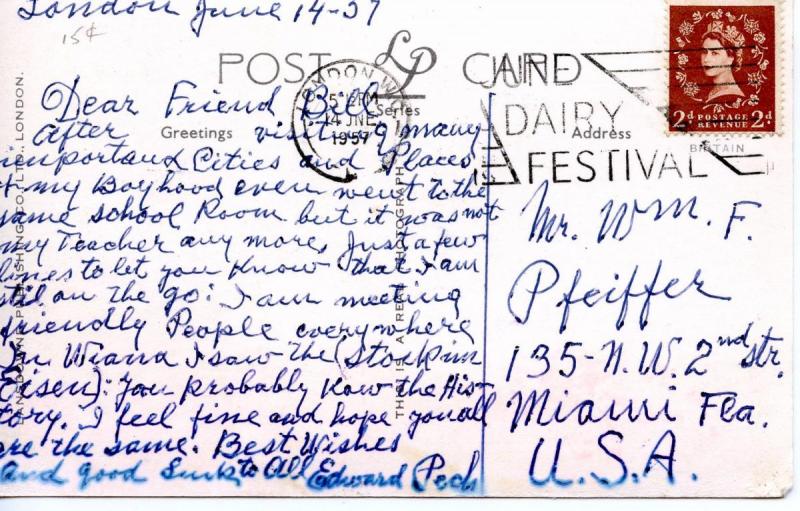 London June 14-57
15¢
POST LP CARD
Series
Greetings
Address
LONDON W.
5 PM
14 JNE
1957
JUNE
DAIRY
FESTIVAL
2d POSTAGE REVENUE 2d
BRITAIN
Dear Friend Bill
After visiting many
importand Cities and Places
of my Boyhood even went to the
same school Room but it was not
my Teacher any more, Just a few
lines to let you Know that I am
stil on the go: I am meeting
friendly People everywhere
In Wiana I saw the (Stock im
Eisen): you probably Know the His-
tory. I feel fine and hope you all
are the same. Best Wishes
and good Luck to All Edward Pech
Mr. Wm. F.
Pfeiffer
135-N.W. 2nd Str.
Miami Fla.
U.S.A.
LANSDOWNE PUBLISHING CO., LTD., LONDON.
THIS IS A REAL PHOTOGRAPH